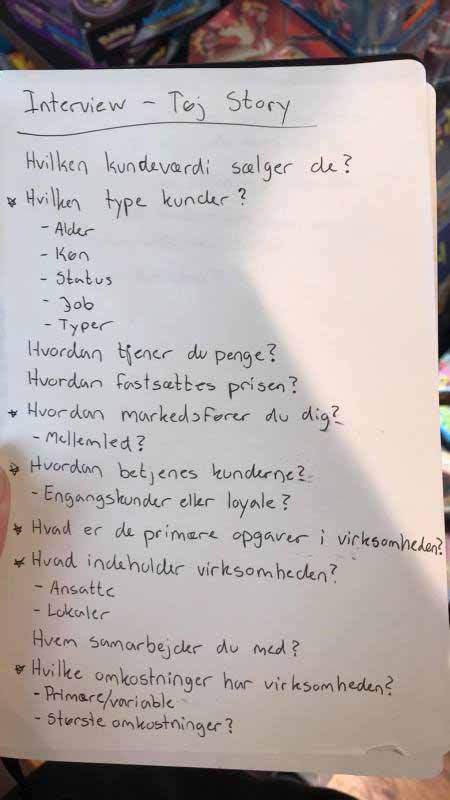 Interview - Tøj Story
Hvilken kundeværdi sælger de?
* Hvilken type kunder?
- Alder
- Køn
- Status
- Job
- Typer
Hvordan tjener du penge?
Hvordan fastsættes prisen?
* Hvordan markedsfører du dig?
- Mellemled?
* Hvordan betjenes kunderne?
- Engangskunder eller loyale?
* Hvad er de primære opgaver i virksomheden?
* Hvad indeholder virksomheden?
- Ansatte
- Lokaler
Hvem samarbejder du med?
* Hvilke omkostninger har virksomheden?
- Primære/variable
- Største omkostninger?